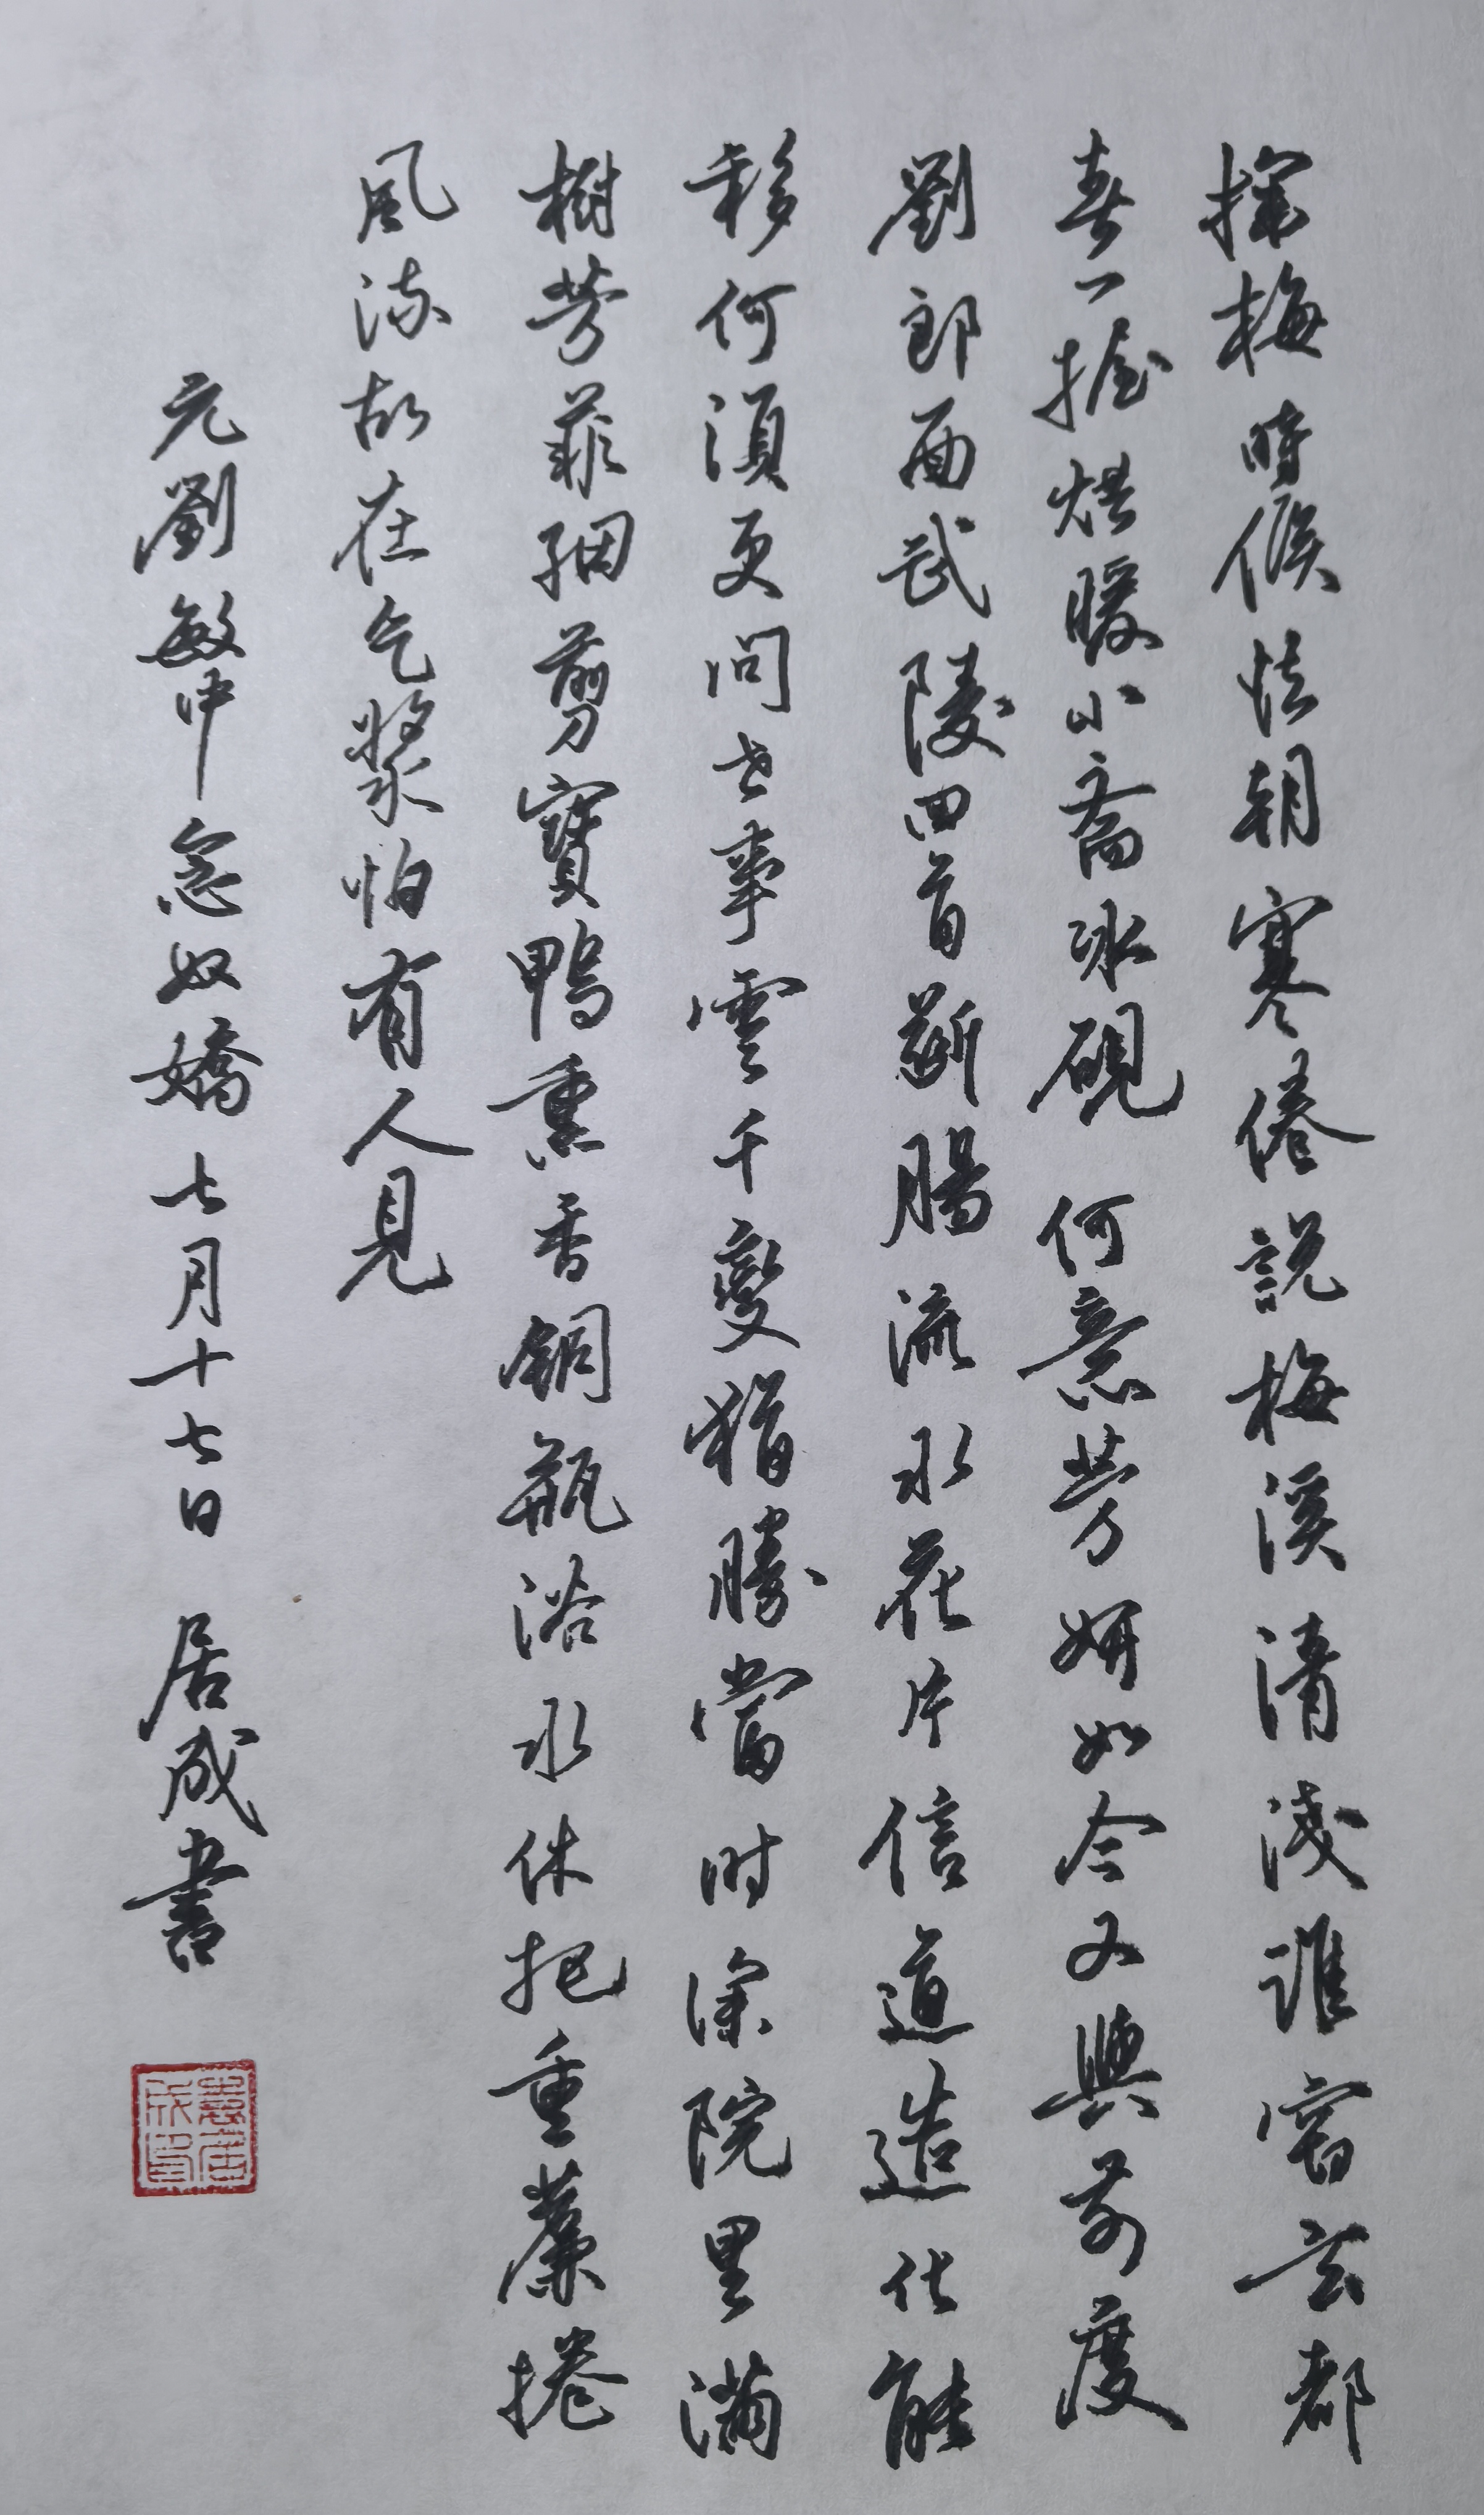 探梅時候怯朝寒倦說梅溪清淺誰宿玄都
春一握烘暖小齋冰硯何意芳妍如今又與前度
劉郎面武陵回首斷腸流水花片信道造化能
移何須更問世事雲千變猶勝當时深院里滿
樹芳菲絪剪寶鴨熏香銅瓶浴水休把重簾捲
風流故在乞漿怕有人見
元劉敏中念奴嬌七月十七日居成書